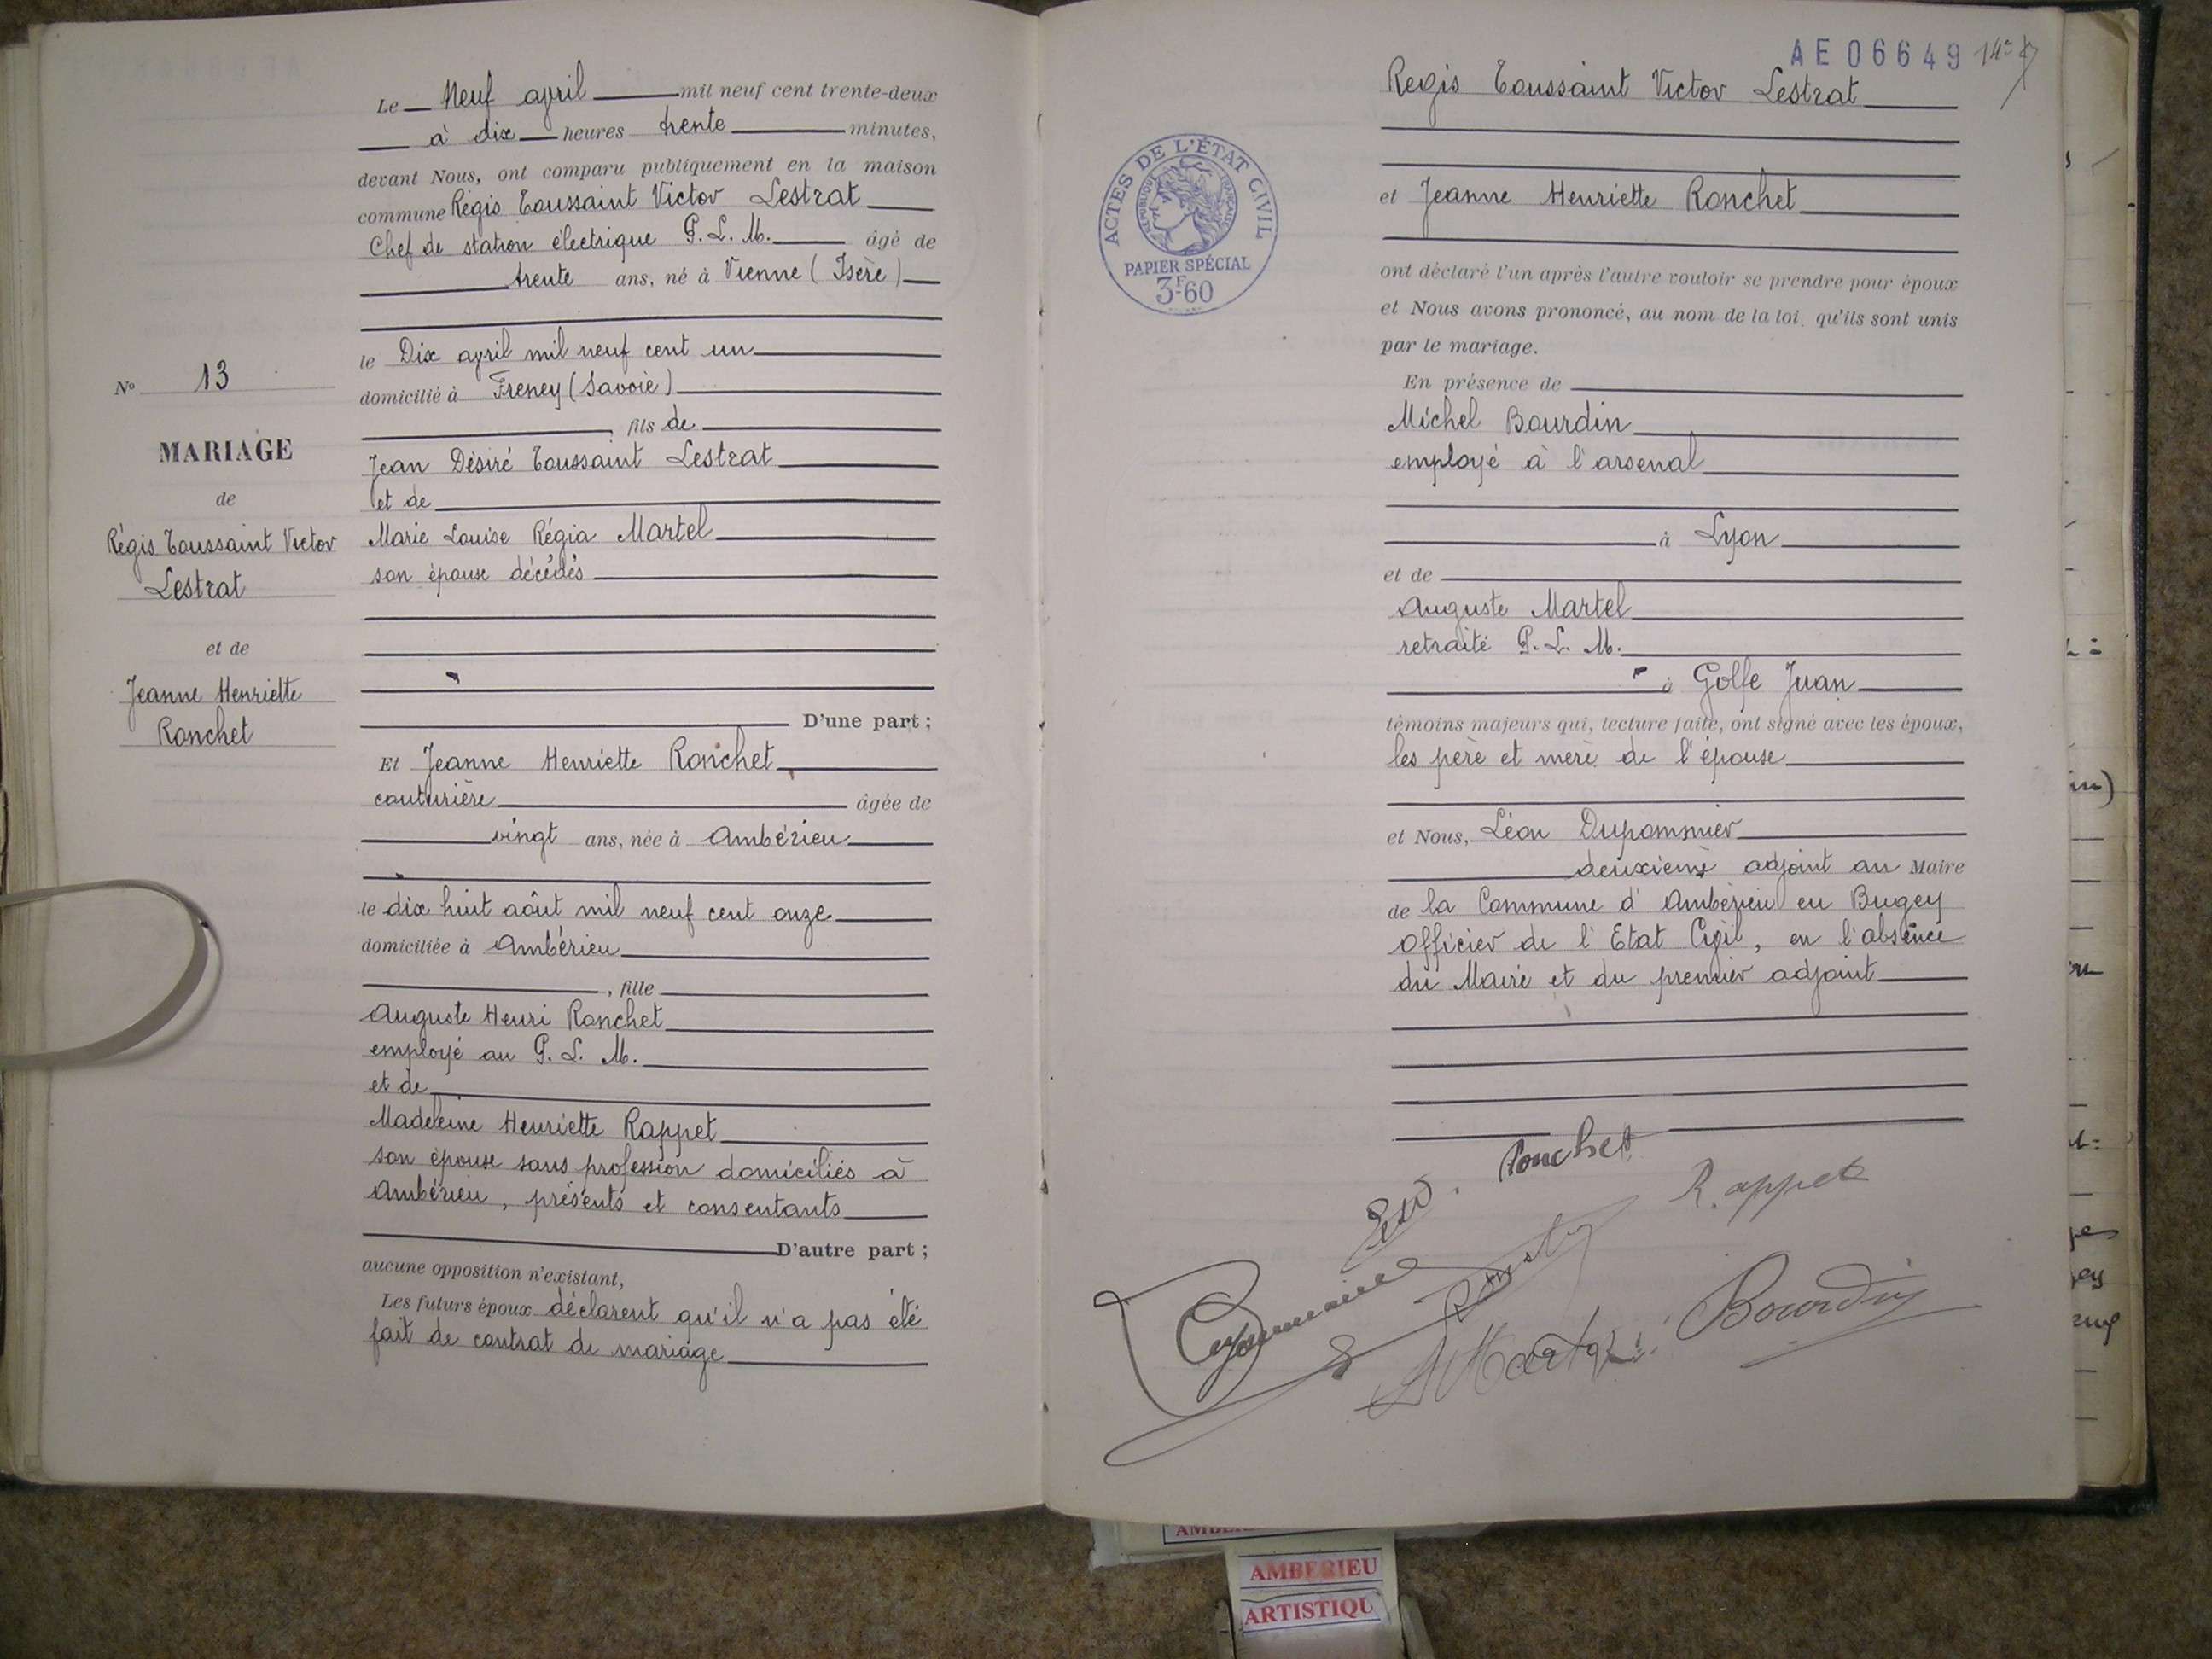 Le Neuf avril mil neuf cent trente-deux
à dix heures trente minutes,
devant Nous, ont comparu publiquement en la maison
commune Régis Toussaint Victor Lestrat
Chef de station électrique P. L. M. âgé de
trente ans, né à Vienne (Isère)
le Dix avril mil neuf cent un
domicilié à Freney (Savoie)
, fils de
Jean Désiré Toussaint Lestrat
et de
Marie Louise Régia Martel
son épouse décédés
D'une part ;
Et Jeanne Henriette Ronchet
couturière âgée de
vingt ans, née à Ambérieu
le dix huit août mil neuf cent onze
domiciliée à Ambérieu
, fille
Auguste Henri Ronchet
employé au P. L. M.
et de
Madeleine Henriette Rappet
son épouse sans profession domiciliés à
Ambérieu, présents et consentants
D'autre part ;
aucune opposition n'existant,
Les futurs époux déclarent qu'il n'a pas été
fait de contrat de mariage
N° 13
MARIAGE
de
Régis Toussaint Victor
Lestrat
et de
Jeanne Henriette
Ronchet
AE06649
ACTES DE L'ÉTAT CIVIL
RÉPUBLIQUE FRANÇAISE
PAPIER SPÉCIAL
3F.60
Regis Toussaint Victor Lestrat
et Jeanne Henriette Ronchet
ont déclaré l'un après l'autre vouloir se prendre pour époux
et Nous avons prononcé, au nom de la loi, qu'ils sont unis
par le mariage.
En présence de
Michel Bourdin
employé à l'arsenal
à Lyon
et de
Auguste Martel
retraité P. L. M.
à Golfe Juan
témoins majeurs qui, lecture faite, ont signé avec les époux,
les père et mère de l'épouse
et Nous, Léon Dupommier
deuxième adjoint au Maire
de la Commune d'Ambérieu en Bugey
Officier de l'Etat Civil, en l'absence
du Maire et du premier adjoint
Ronchet
Rappet
Martel
Bourdin
AMBERIEU
ARTISTIQU